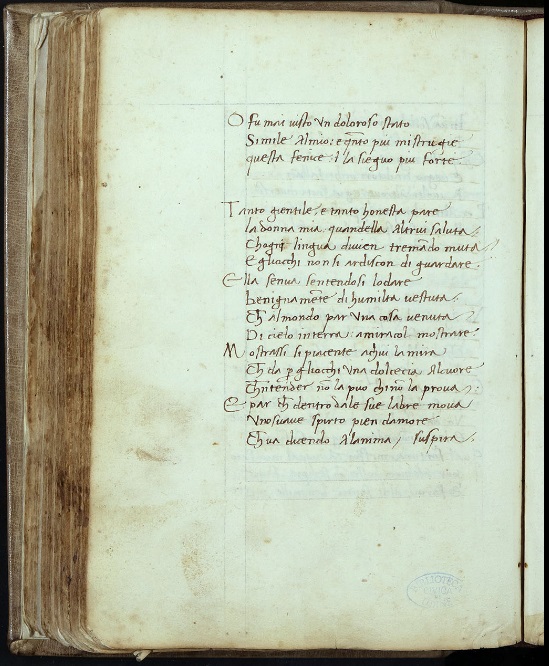 O fu mai uisto Vn doloroso stato
Simile Almio: e q̄nto piu mi strugie
questa fenice: i la sieguo piu forte
Tanto gientile, e tanto honesta pare
la donna mia quandella Altrui saluta
Chogn lingua diuien tremādo muta
E gliocchi non si ardiscon di guardare.
Ella senua sentendosi lodare
benignamēte di humilta uestuta.
Ch̄ Almondo par Vna cosa uenuta
Di cielo interra: amiracol mostrare.
Mostrassi si piacente achui la mira
Ch̄ da p gliocchi Vna dolcecia Alcuore
Ch̄ntender nō la puo chi nō la proua
E par ch̄ dentro dale sue labre moua
Vno suaue spirto pien damore
Ch̄ ua dicendo Alanima, suspira.
BIBLIOTECA CIVICA